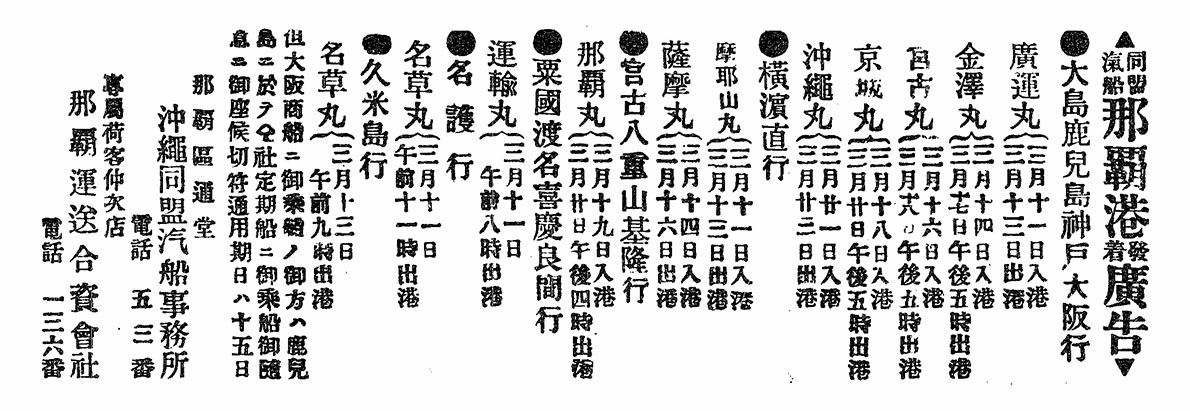 ▲同盟汽船那覇港發着廣告▼
●大島鹿兒島神戸大阪行
廣運丸
三月十一日入港
三月十三日出港
金澤丸
三月十四日入港
三月十七日午後五時出港
宮古丸
三月十六日入港
三月十八日午後五時出港
京城丸
三月十八日入港
三月廿日午後五時出港
沖繩丸
三月廿日入港
三月廿二日出港
●横濵直行
摩耶山丸
三月十一日入港
三月十三日出港
薩摩丸
三月十四日入港
三月十六日出港
●宮古八重山基隆行
那覇丸
三月十九日入港
三月廿日午後四時出港
●粟國渡名喜慶良間行
運輸丸
三月十一日
午前八時出港
●名護行
名草丸
三月十一日
午前十一時出港
●久米島行
名草丸
三月十三日
午前九時出港
但大阪商船ニ御乘船ノ御方ハ鹿兒
島ニ於テ仝社定期船ニ御乘船御隨
意ニ御座候切符通用期日ハ十五日
那覇區通堂
沖繩同盟汽船事務所
電話 五三番
專屬荷客仲次店
那覇運送合資會社
電話 一三六番